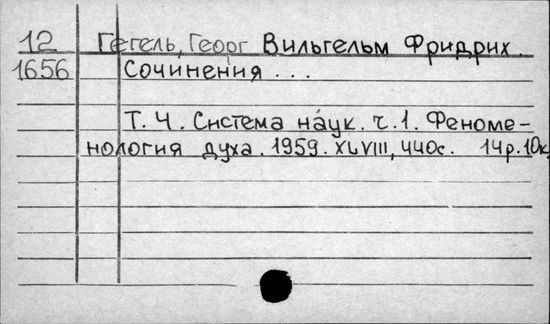 12 Гегель, Георг Вильгельм Фридрих.
1656 Сочинения ...
Т. 4. Система наук. ч. 1. Феноме-
нология духа. 1959. XLVIII, 440с. 14р. 10к.